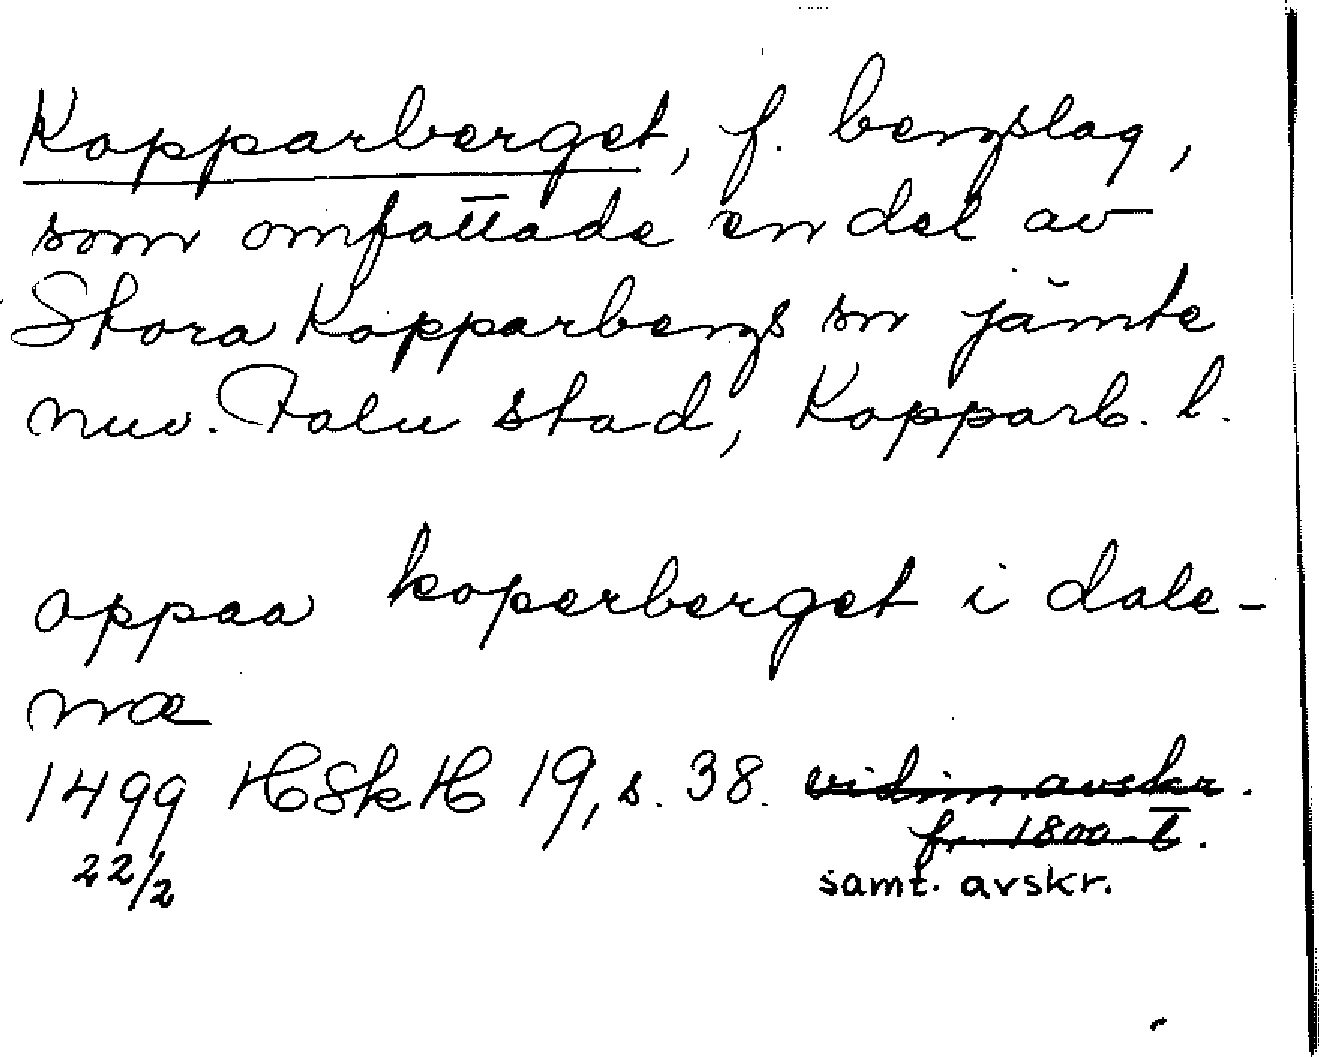 Kopparberget, f. bergslag,
som omfattade en del av
Stora Kopparbergs sn jämte
nuv. Falu stad, Kopparb. l.
oppaa koperberget i dale-
næ
1499 HSkH 19, s. 38. vidim. avskr.
22/2 fr. 1800-t.
samt. avskr.